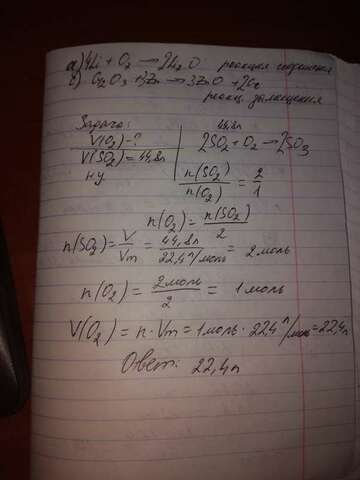 а) 4Li + O₂ → 2Li₂O реакция соединения
б) Cr₂O₃ + 3Zn → 3ZnO + 2Cr
реакц. замещения
Задача:
V(O₂) = ?
V(SO₂) = 44,8л
н.у
44,8л
2SO₂ + O₂ → 2SO₃
n(SO₂)/n(O₂) = 2/1
n(O₂) = n(SO₂)/2
n(SO₂) = V/Vm = 44,8л/22,4л/моль = 2 моль
n(O₂) = 2моль/2 = 1 моль
V(O₂) = n · Vm = 1моль · 22,4 л/моль = 22,4л
Ответ: 22,4л